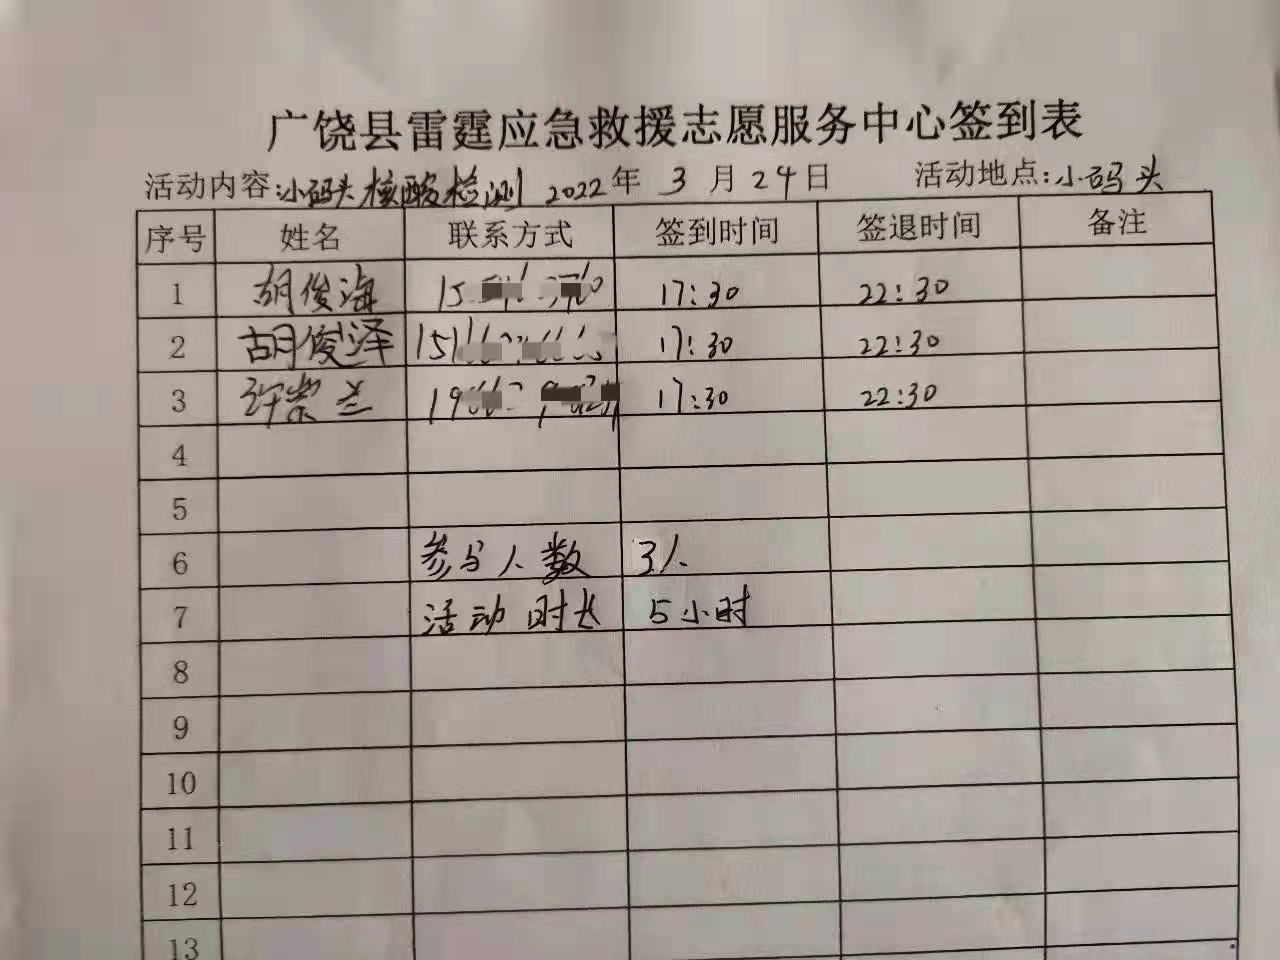 广饶县雷霆应急救援志愿服务中心签到表
活动内容:小码头核酸检测 2022年 3 月 24日 活动地点:小码头
序号 姓名 联系方式 签到时间 签退时间 备注
1 胡俊海 17:30 22:30
2 胡俊泽 17:30 22:30
3 17:30 22:30
4
5
6 参与人数 3人
7 活动时长 5小时
8
9
10
11
12
13